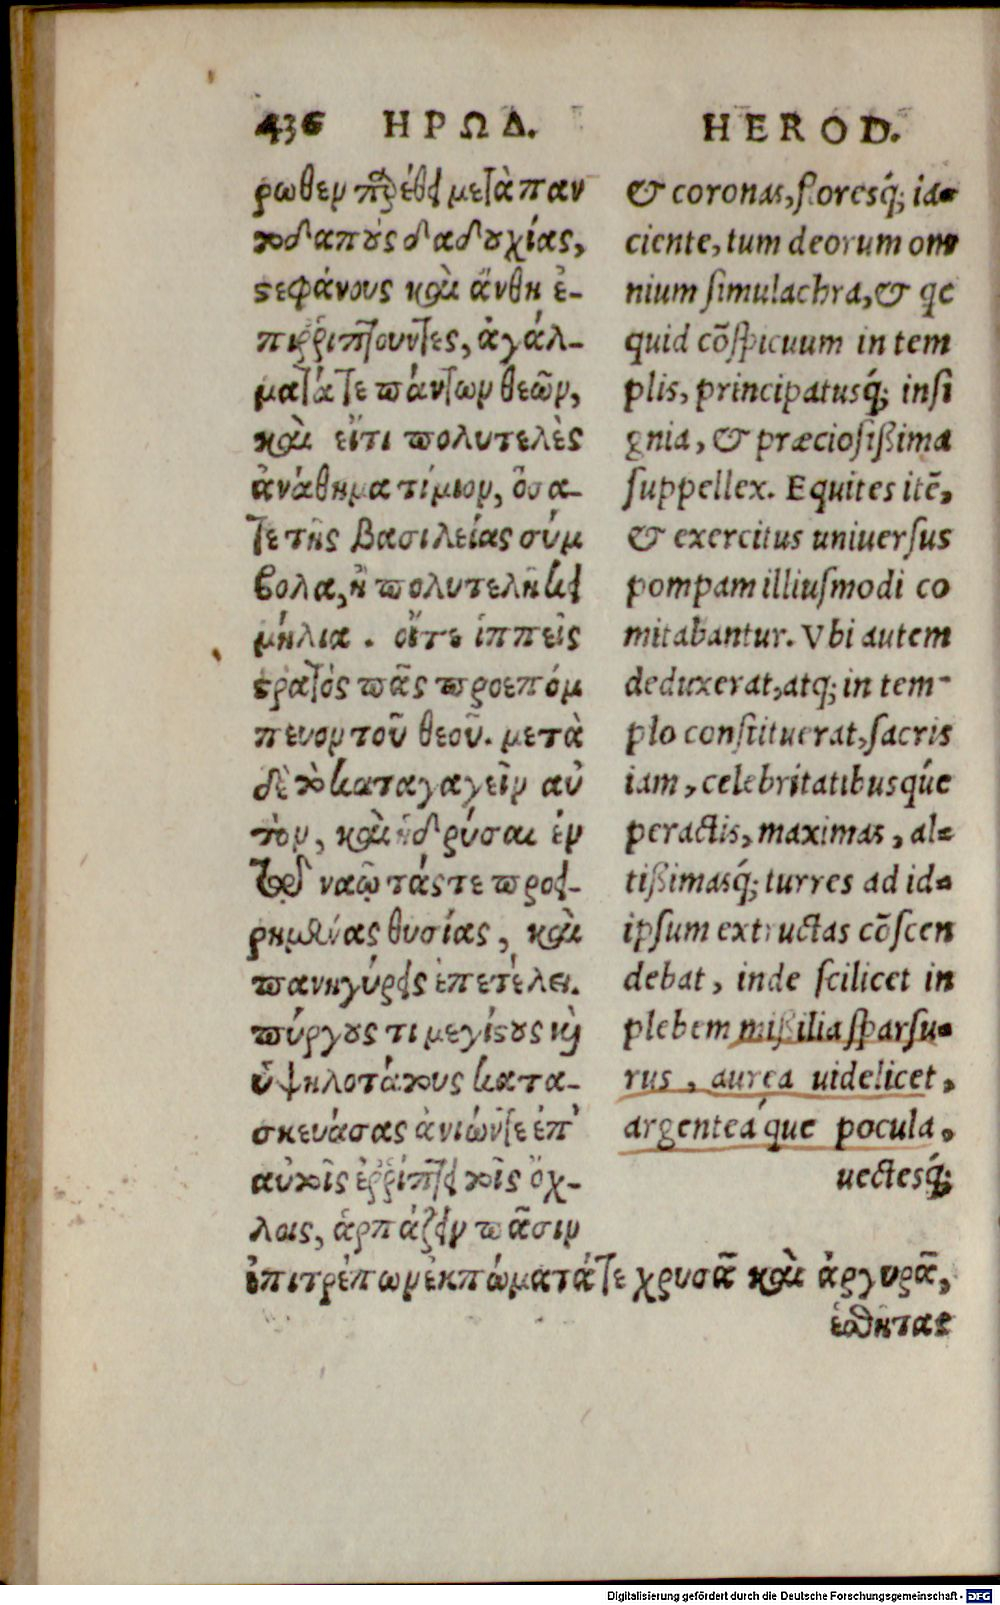 436 ΗΡΩΔ.
ρωθεν παρέθει μετὰ παν
τοδαποὺς δᾳδουχίας,
στεφάνους καὶ ἄνθη ἐ-
πιῤῥιπτοῦντες, ἀγάλ-
ματά τε πάντων θεῶν,
καὶ εἴτι πολυτελὲς
ἀνάθημα τίμιον, ὅσα-
τε τῆς βασιλείας σύμ
βολα, ἢ πολυτελῆ κει
μήλια. οἵτε ἱππεῖς
στρατός πᾶς προεπόμ
πευον τοῦ θεοῦ. μετὰ
δὲ τὸ καταγαγεῖν αὐ
τὸν, καὶ ἱδρύσαι ἐν
τῷ ναῷ τάς τε προει-
ρημένας θυσίας, καὶ
πανηγύρεις ἐπετέλει.
πύργους τι μεγίστους καὶ
ὑψηλοτάτους κατα-
σκευάσας ἀνιών τε ἐπ'
αὐτοῖς ἐῤῥίπτει τοῖς ὄχ-
λοις, ἁρπάζειν πᾶσιν
ἐπιτρέπων ἐκπώματά τε χρυσᾶ καὶ ἀργυρᾶ,
ἐσθῆτας
HEROD.
& coronas, floresq́; ia-
ciente, tum deorum om
nium simulachra, & qc
quid cõspicuum in tem
plis, principatusq́; insi
gnia, & præciosißima
suppellex. Equites itẽ,
& exercitus uniuersus
pompam illiusmodi co
mitabantur. Vbi autem
deduxerat, atq; in tem-
plo constituerat, sacris
iam, celebritatibusq́ue
peractis, maximas, al-
tißimasq́; turres ad id-
ipsum extructas cõscen
debat, inde scilicet in
plebem mißilia sparsu-
rus, aurea uidelicet,
argenteáque pocula,
uectesq́;
Digitalisierung gefördert durch die Deutsche Forschungsgemeinschaft - DFG